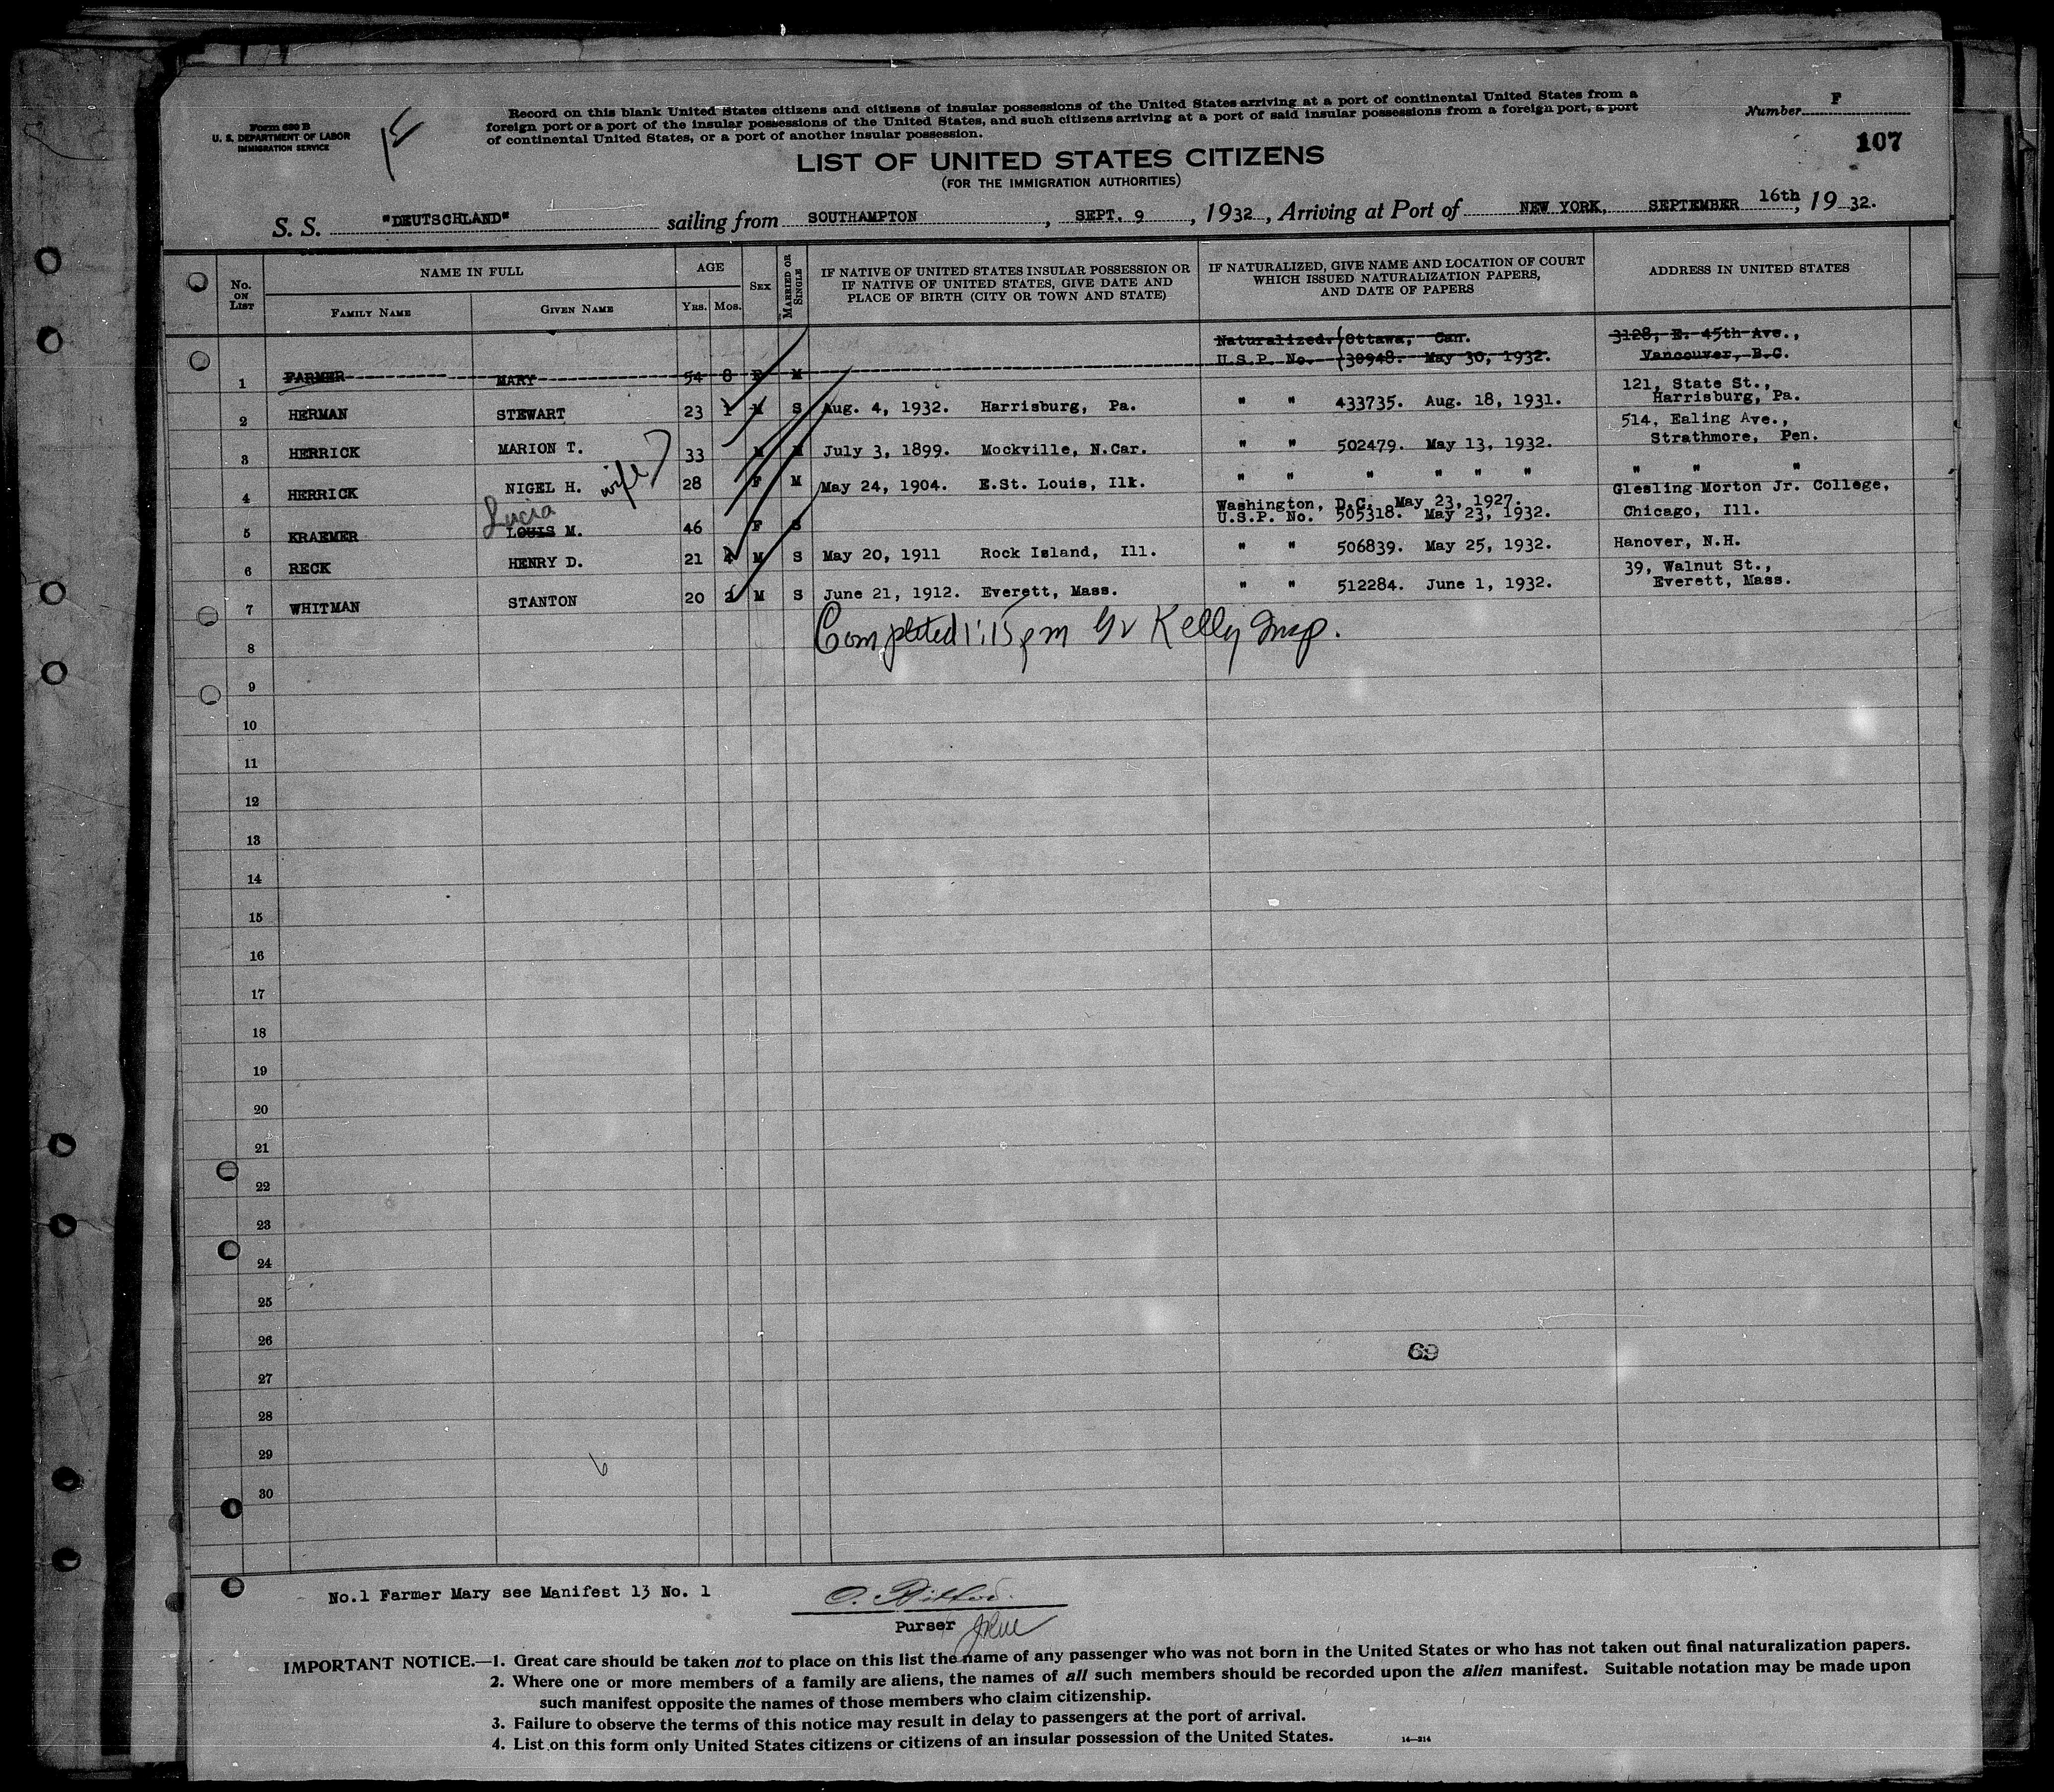 Form 630 B
U. S. DEPARTMENT OF LABOR
IMMIGRATION SERVICE
Record on this blank United States citizens and citizens of insular possessions of the United States arriving at a port of continental United States from a
foreign port or a port of the insular possessions of the United States, and such citizens arriving at a port of said insular possessions from a foreign port, a port
of continental United States, or a port of another insular possession.
Number F
107
LIST OF UNITED STATES CITIZENS
(FOR THE IMMIGRATION AUTHORITIES)
S. S. "DEUTSCHLAND" sailing from SOUTHAMPTON, SEPT. 9, 1932, Arriving at Port of NEW YORK, SEPTEMBER 16th, 1932.
No. ON LIST NAME IN FULL FAMILY NAME GIVEN NAME AGE YRS. MOS. SEX MARRIED OR SINGLE IF NATIVE OF UNITED STATES INSULAR POSSESSION OR IF NATIVE OF UNITED STATES, GIVE DATE AND PLACE OF BIRTH (CITY OR TOWN AND STATE) IF NATURALIZED, GIVE NAME AND LOCATION OF COURT WHICH ISSUED NATURALIZATION PAPERS, AND DATE OF PAPERS ADDRESS IN UNITED STATES
1 FARMER MARY 54 8 F M Naturalized. (Ottawa, Can. U.S.P. No. (30948. May 30, 1932. 3128, E. 45th Ave., Vancouver, B.C.
2 HERMAN STEWART 23 1 M S Aug. 4, 1932. Harrisburg, Pa. " " 433735. Aug. 18, 1931. 121, State St., Harrisburg, Pa.
3 HERRICK MARION T. 33 M M July 3, 1899. Mockville, N.Car. " " 502479. May 13, 1932. 514, Ealing Ave., Strathmore, Pen.
4 HERRICK NIGEL H. wife 28 F M May 24, 1904. E.St. Louis, Ill. " " " " " " " " "
5 KRAEMER Lucia LOUIS M. 46 F S Washington, D.C. May 23, 1927. U.S.P. No. 505318. May 23, 1932. Glesling Morton Jr. College, Chicago, Ill.
6 RECK HENRY D. 21 4 M S May 20, 1911 Rock Island, Ill. " " 506839. May 25, 1932. Hanover, N.H.
7 WHITMAN STANTON 20 2 M S June 21, 1912. Everett, Mass. " " 512284. June 1, 1932. 39, Walnut St., Everett, Mass.
8 Completed 1:15 pm Kelly Insp.
9
10
11
12
13
14
15
16
17
18
19
20
21
22
23
24
25
26
69
27
28
29
30
No.1 Farmer Mary see Manifest 13 No. 1
Purser
IMPORTANT NOTICE.—1. Great care should be taken not to place on this list the name of any passenger who was not born in the United States or who has not taken out final naturalization papers.
2. Where one or more members of a family are aliens, the names of all such members should be recorded upon the alien manifest. Suitable notation may be made upon
such manifest opposite the names of those members who claim citizenship.
3. Failure to observe the terms of this notice may result in delay to passengers at the port of arrival.
4. List on this form only United States citizens or citizens of an insular possession of the United States.
14—214